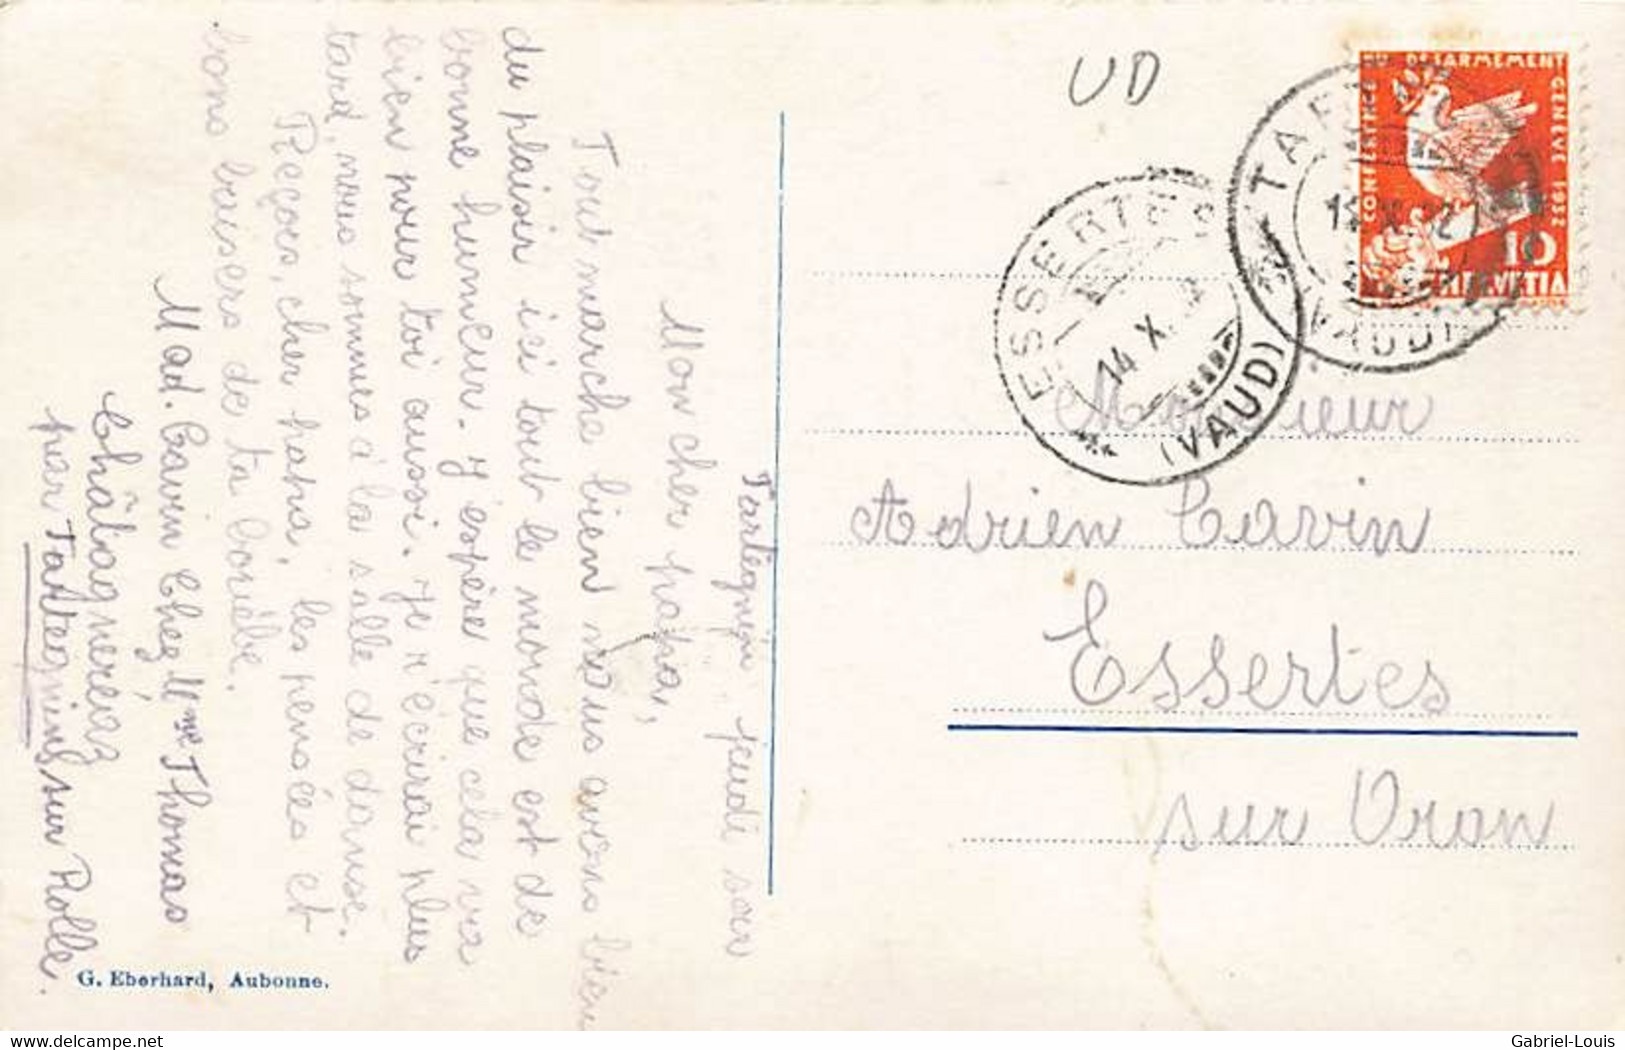 Tartegnin jeudi soir
Mon cher papa,
Tout marche bien nous avons bien
du plaisir ici tout le monde est de
bonne humeur. J'espère que cela va
bien pour toi aussi. Je t'écrirai plus
tard, nous sommes à la salle de danse.
Reçois, cher papa, les pensées et
bons baisers de ta
Mad. Cavin Chez Mme Thomas
Châtagneréaz
par Tartegnins sur Rolle.
G. Eberhard, Aubonne.
UD
CONFERENCE DU DESARMEMENT GENEVE 1932
10
HELVETIA
(VAUD)
ESSERTES
14 X.
(VAUD)
Monsieur
Adrien Cavin
Essertes
sur Oron
hipostcard.com
Gabriel-Louis